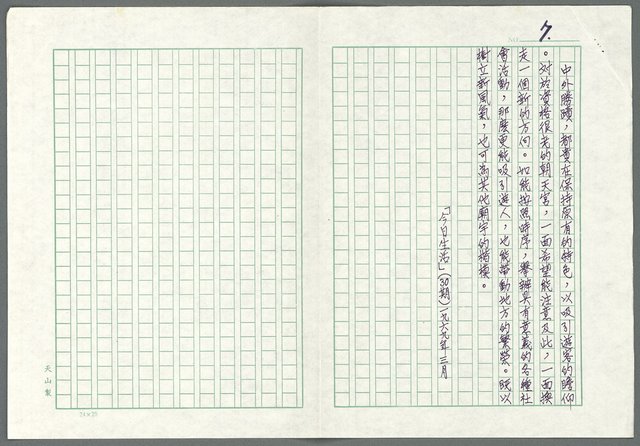 NO. 7.
中外勝蹟，都貴在保持原有的特色，以吸引遊客的瞻仰
。对於資格很老的朝天宮，一面希望能注意及此，一面換
走一個新的方向。如能按照時序，舉辦具有意義的各種社
會活動，那麼更能吸引遊人，也能帶動地方的繁榮。既以
樹立新風氣，也可為其他廟宇的楷模。
「今日生活」(30期)一九六九年三月
天山製
24×25